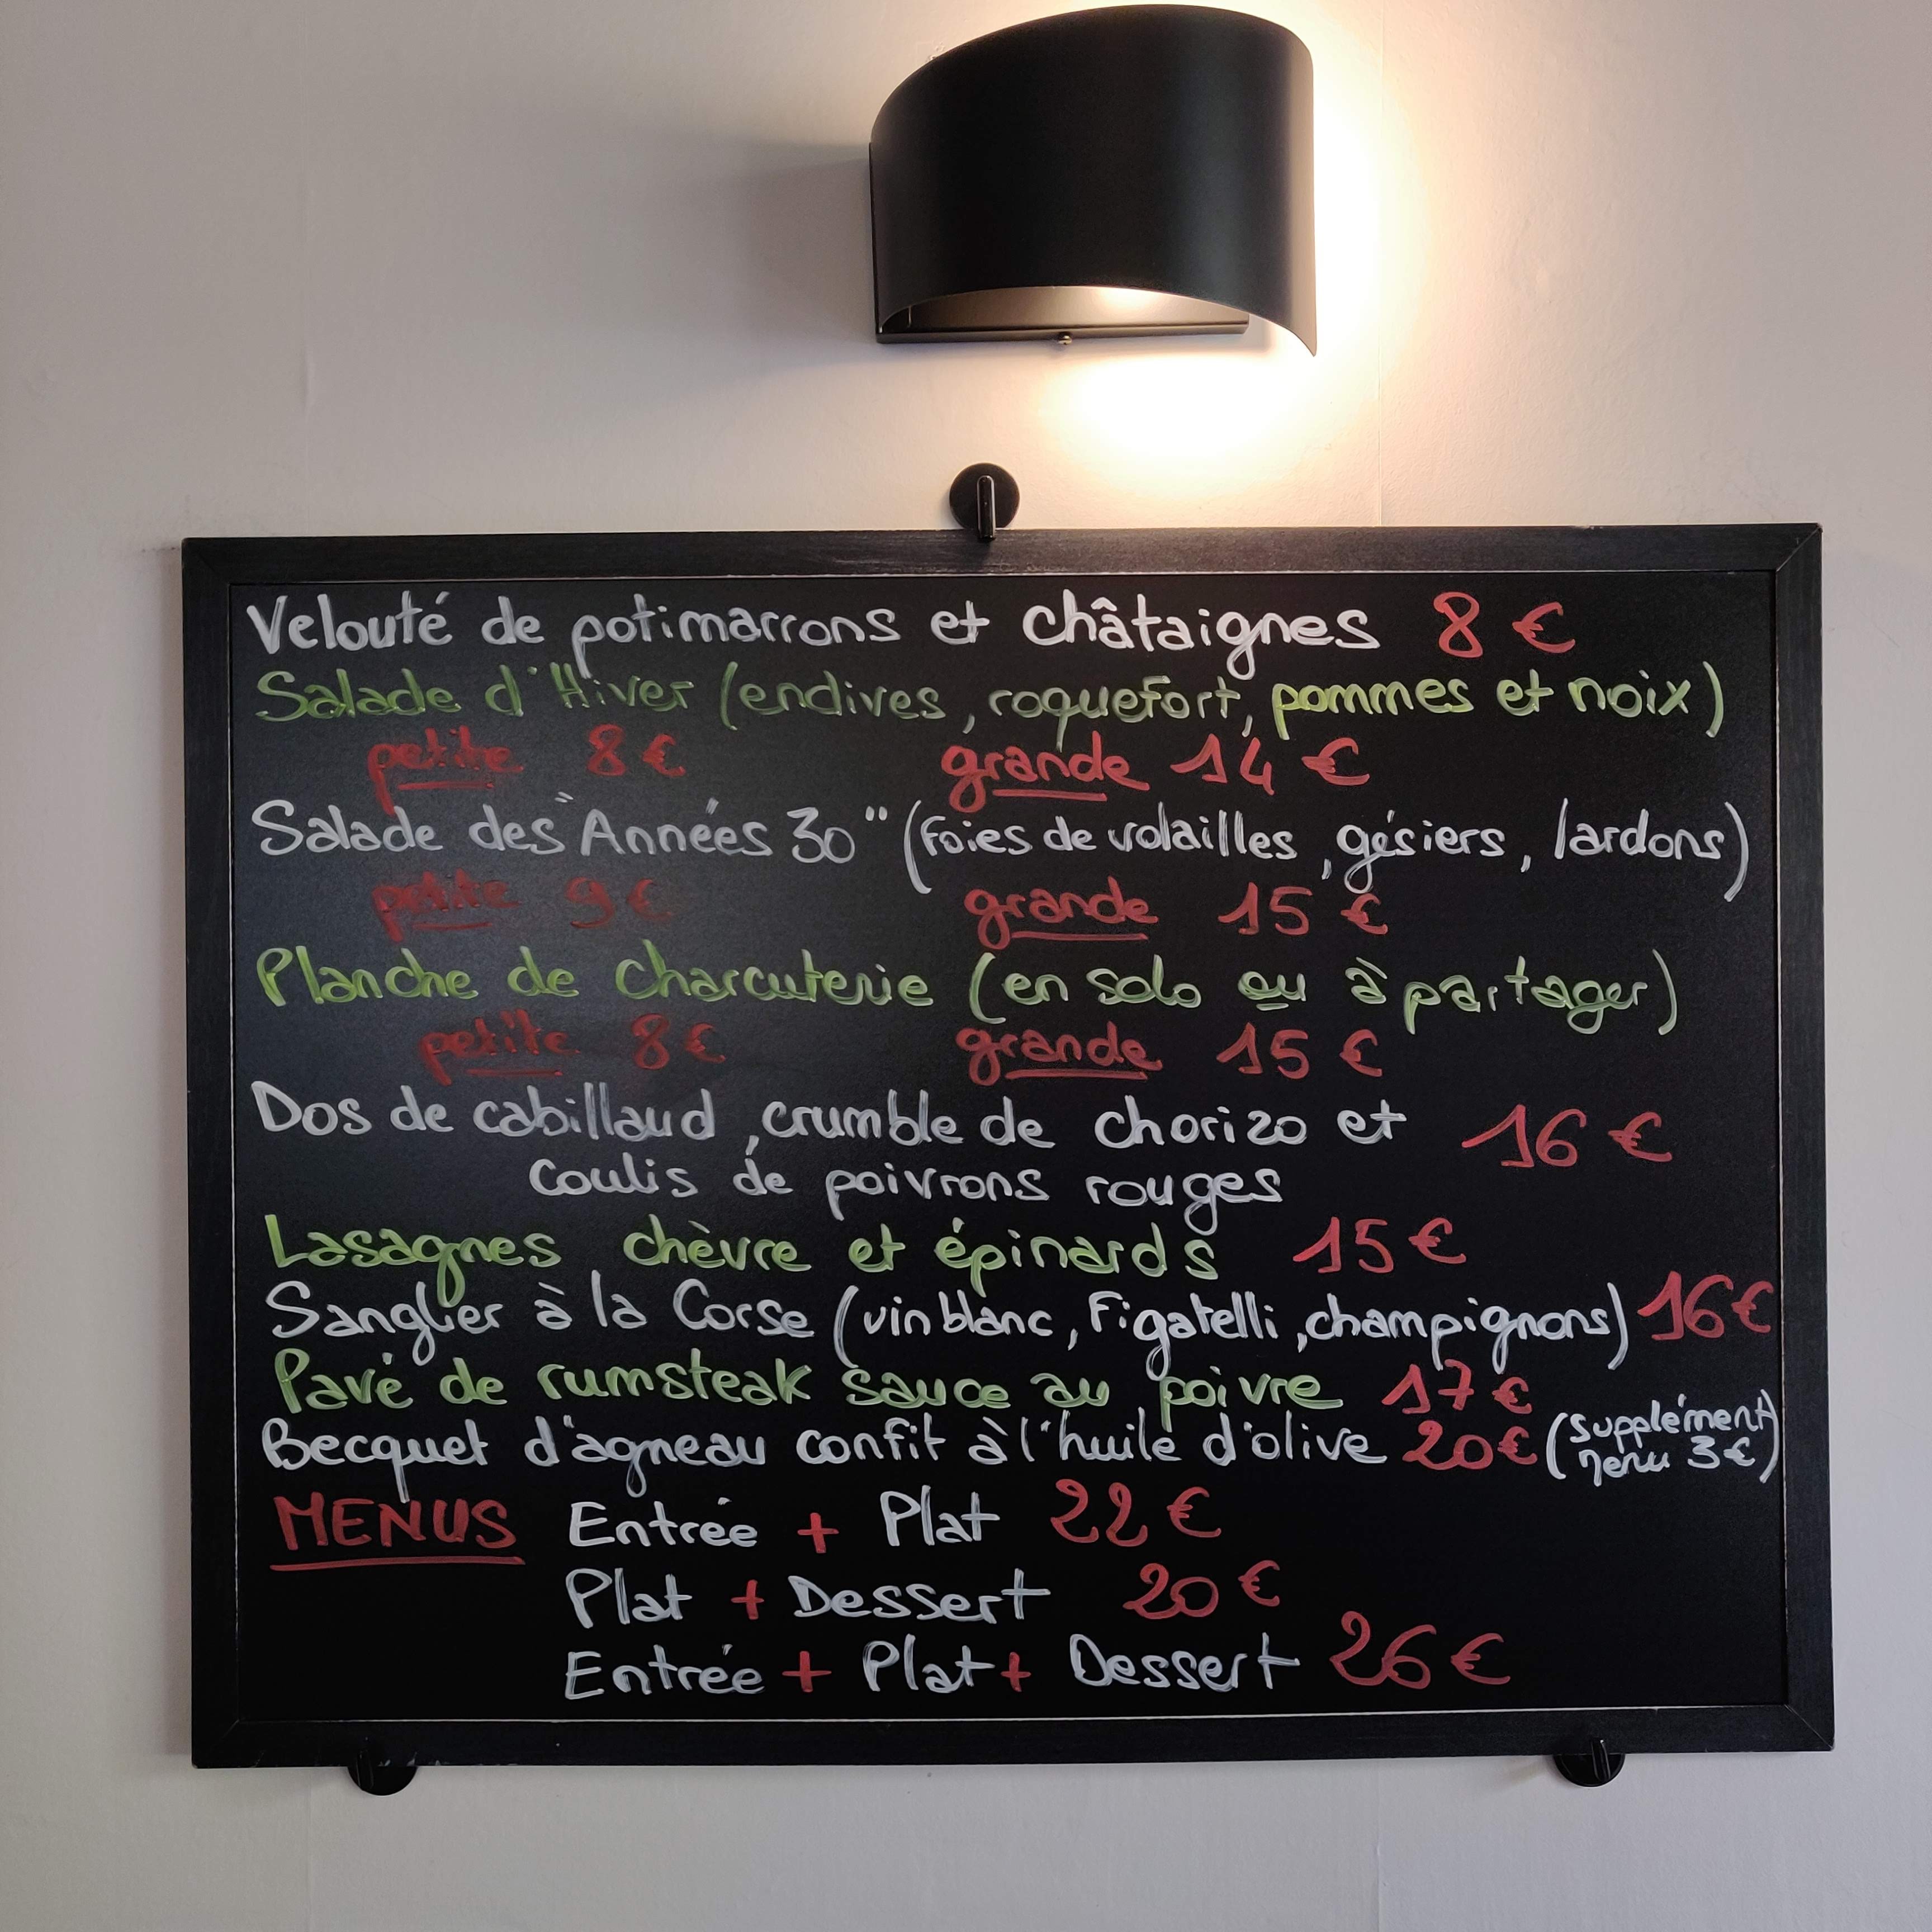 Velouté de potimarrons et châtaignes 8 €
Salade d'Hiver (endives, roquefort, pommes et noix)
petite 8 € grande 14 €
Salade des "Années 30" (foies de volailles, gésiers, lardons)
petite 9 € grande 15 €
Planche de charcuterie (en solo ou à partager)
petite 8 € grande 15 €
Dos de cabillaud, crumble de chorizo et 16 €
coulis de poivrons rouges
Lasagnes chèvre et épinards 15 €
Sanglier à la Corse (vin blanc, Figatelli, champignons) 16 €
Pavé de rumsteak sauce au poivre 17 €
Becquet d'agneau confit à l'huile d'olive 20 € (supplément
menu 3 €)
MENUS Entrée + Plat 22 €
Plat + Dessert 20 €
Entrée + Plat + Dessert 26 €